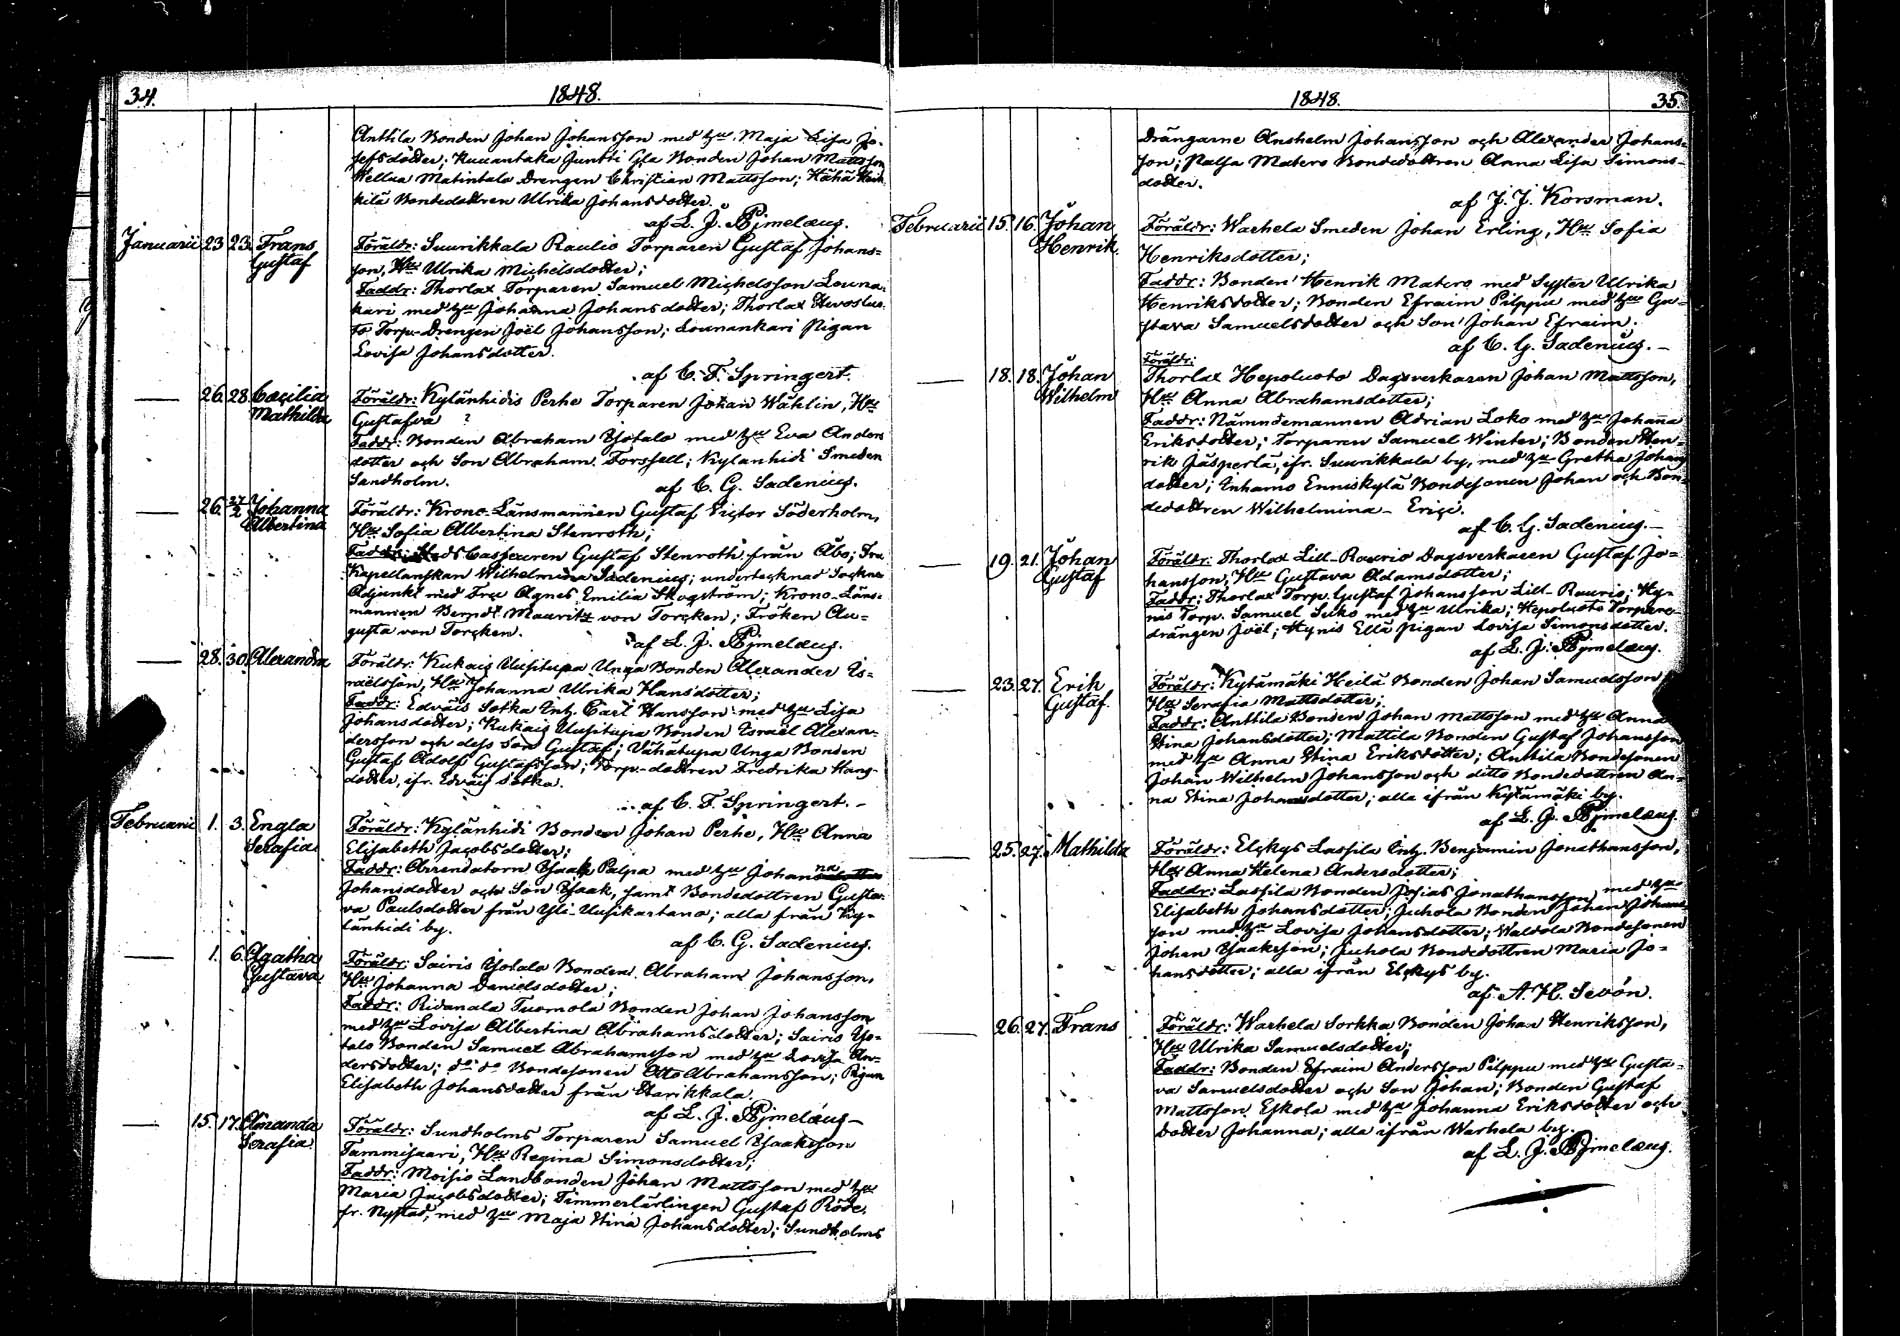 34.
1848.
Anttila Bonden Johan Johansson med hu Maja Lisa Jo-
sefsdotter; Kuuantaka Juntti Yla Bonden Johan Mattsson
Wellua Matintalo Drengen Christian Mattsson; Hähä Heik-
kilä Bondedottren Ulrika Johansdotter.
af L. J. Pjmelæus.
Januarii 23 23. Frans Gustaf
Föräldr: Suurikkala Raulio Torparen Gustaf Johans-
son, Hu Ulrika Michelsdotter;
Faddr: Thorlax Torparen Samuel Michelsson Louna-
kari med hu Johanna Johansdotter; Thorlax Hevoslua-
to Torp. Drengen Joël Johansson; Lounankari Pigan
Lovisa Johansdotter.
af C. F. Springert.
— 26. 28. Cæcilia Mathilda
Föräldr: Kylänhidis Perhe Torparen Johan Wäklin, Hu
Gustafva ?
Faddr: Bonden Abraham Yotalo med hu Eva Anders
dotter och Son Abraham Forssell; Kylanhidi Smeden
Sandholm.
af C. G. Sadenius.
— 26. 27/2 Johanna Albertina
Föräldr: Krono-Länsmannen Gustaf Victor Söderholm,
Hu Sofia Albertina Stenroth;
Faddr: Casseuren Gustaf Stenroth från Åbo; Fru
Kapellanskan Wilhelmina Sadenius; undertecknad Sockne
Adjunkt med Fru Agnes Emilia Skogström; Krono-Läns-
mannen Berndt Mauritz von Torcken; Fröken Au-
gusta von Torcken.
af L. J. Pjmelæus.
— 28. 30. Alexandra
Föräldr: Kukais Uusitupa Unga Bonden Alexander Is-
raelsson, Hu Johanna Ulrika Hansdotter;
Faddr: Edväis Sotka Inh. Carl Hansson med hu Lisa
Johansdotter; Kukais Uusitupa Bonden Israël Alexan-
dersson och dess Son Gustaf; Vähätupa Unga Bonden
Gustaf Adolf Gustafsson; Torp.-dottren Fredrika Hans-
dotter, ifr. Edväis Sotka.
af C. F. Springert. —
Februarii 1. 3. Engla Serafia.
Föräldr: Kylänhidi Bonden Johan Perhe, Hu Anna
Elisabeth Jacobsdotter;
Faddr: Arrendatorn Ysaak Palpa med hu Johanna
Johansdotter och Son Ysaak, samt Bondedottren Gusta-
va Paulsdotter från Yli-Uusikartano; alla från Ky-
länhidi by.
af C. G. Sadenius.
— 1. 6. Agatha Gustava
Föräldr: Sairis Yotalo Bonden Abraham Johansson,
Hu Johanna Danielsdotter;
Faddr: Ridanala Tuomola Bonden Johan Johansson
med hu Lovisa Albertina Abrahamsdotter; Sairis Yo-
talo Bonden Samuel Abrahamsson med hu Lovisa An-
dersdotter; do do Bondesonen Otto Abrahamsson; Pigan
Elisabeth Johansdotter från Starikkala.
af L. J. Pjmelæus —
— 15. 17. Amanda Serafia.
Föräldr: Sundholms Torparen Samuel Ysaaksson
Tammisaari, Hu Regina Simonsdotter;
Faddr: Moisio Landbonden Johan Mattsson med hu
Maria Jacobsdotter; Timmerlärlingen Gustaf Röde,
fr. Nystad, med hu Maja Stina Johansdotter; Sundholms
1848.
35.
Drängarne Anshelm Johansson och Alexander Johans-
son; Palsa Matero Bondedottren Anna Lisa Simons-
dotter.
af J. J. Korsman.
Februarii 15. 16. Johan Henrik.
Föräldr: Warhela Smeden Johan Erling, Hu Sofia
Henriksdotter;
Faddr: Bonden Henrik Matero med Syster Ulrika
Henriksdotter; Bonden Efraim Pilppu med hu Gu-
stava Samuelsdotter och Son Johan Efraim.
af C. G. Sadenius. —
— 18. 18. Johan Wilhelm
Föräldr:
Thorlax Hepoluoto Dagsverkaren Johan Mattsson,
Hu Anna Abrahamsdotter;
Faddr: Nämndemannen Adrian Loko med hu Johanna
Eriksdotter; Torparen Samuel Winter; Bonden Hen-
rik Jäsperlä, ifr. Suurikkala by, med hu Gretha Johans
dotter; Inhamo Enniskylä Bondesonen Johan och Bon-
dedottren Wilhelmina Erici.
af C. G. Sadenius. —
— 19. 21. Johan Gustaf
Föräldr: Thorlax Lill-Raurio Dagsverkaren Gustaf Jo-
hansson, Hu Gustava Adamsdotter;
Faddr: Thorlax Torp. Gustaf Johansson Lill-Raurio; Hy-
nis Torp. Samuel Suko med hu Ulrika; Hepoluoto Torpare-
drängen Joël; Hynis Ellä Pigan Lovisa Simonsdotter.
af L. J. Pjmelæus.
— 23. 27. Erik Gustaf.
Föräldr: Kytämäki Heilä Bonden Johan Samuelsson,
Hu Serafia Mattsdotter;
Faddr: Anttila Bonden Johan Mattsson med hu Anna
Stina Johansdotter; Mattila Bonden Gustaf Johansson
med hu Anna Stina Eriksdotter; Anttila Bondesonen
Johan Wilhelm Johansson och ditto Bondedottren An-
na Stina Johansdotter; alla ifrån Kytämäki by.
af L. J. Pjmelæus.
— 25. 27. Mathilda
Föräldr: Elskys Lassila Inh. Benjamin Jonathansson,
Hu Anna Helena Andersdotter;
Faddr: Lassila Bonden Josias Jonathansson med hu
Elisabeth Johansdotter; Juhola Bonden Johan Johans-
son med hu Lovisa Johansdotter; Waldola Bondesonen
Johan Ysaaksson; Juhola Bondedottren Maria Jo-
hansdotter; alla ifrån Elskys by.
af A. H. Sevón.
— 26. 27. Frans
Föräldr: Warhela Sorkka Bonden Johan Henriksson,
Hu Ulrika Samuelsdotter;
Faddr: Bonden Efraim Andersson Pilppu med hu Gusta-
va Samuelsdotter och Son Johan; Bonden Gustaf
Mattsson Eskola med hu Johanna Eriksdotter och
dotter Johanna; alla ifrån Warhela by.
af L. J. Pjmelæus.